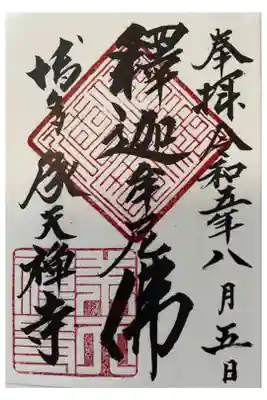 奉拝 令和五年八月五日
釋迦牟尼佛
博多承天禅寺